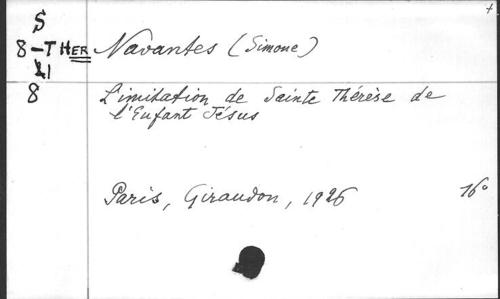 S
8-T HER Navantes (Simone)
21
8 L'imitation de Sainte Thérèse de
l'Enfant Jésus
Paris, Giraudon, 1926 16°